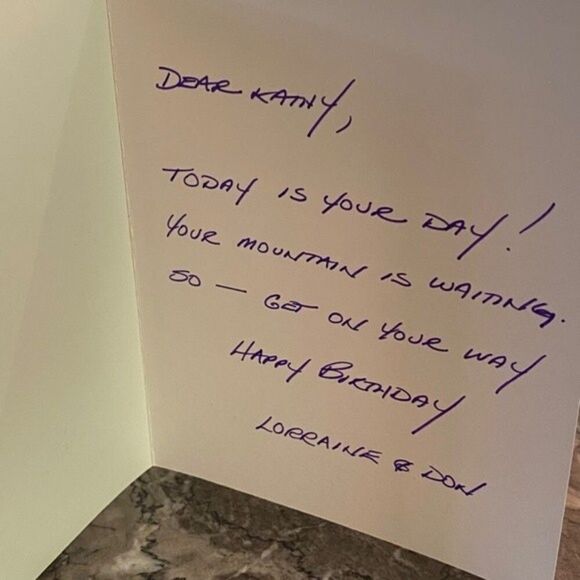 DEAR KATHY,
TODAY IS YOUR DAY!
YOUR MOUNTAIN IS WAITING.
SO — GET ON YOUR WAY
HAPPY BIRTHDAY
LORRAINE & DON